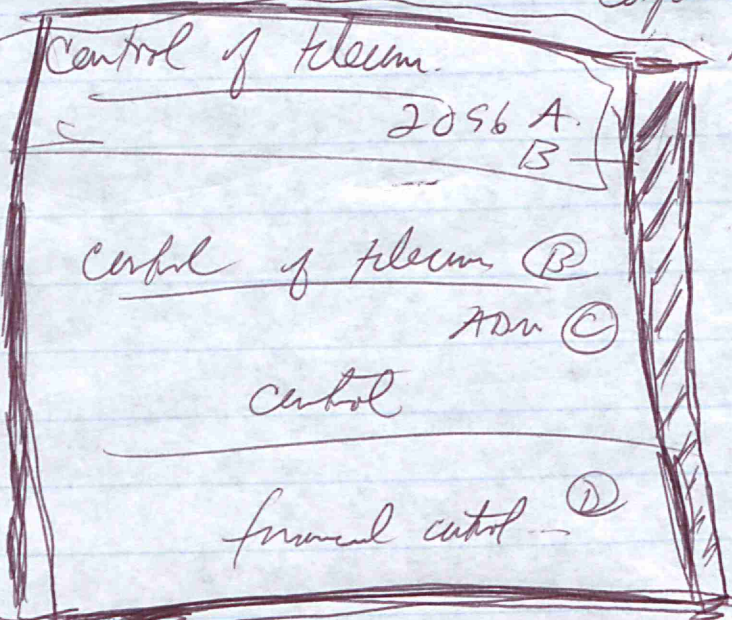 control of telecom.
2096 A.
B
control of telecom Ⓑ
ADM Ⓒ
control
financial control - Ⓓ